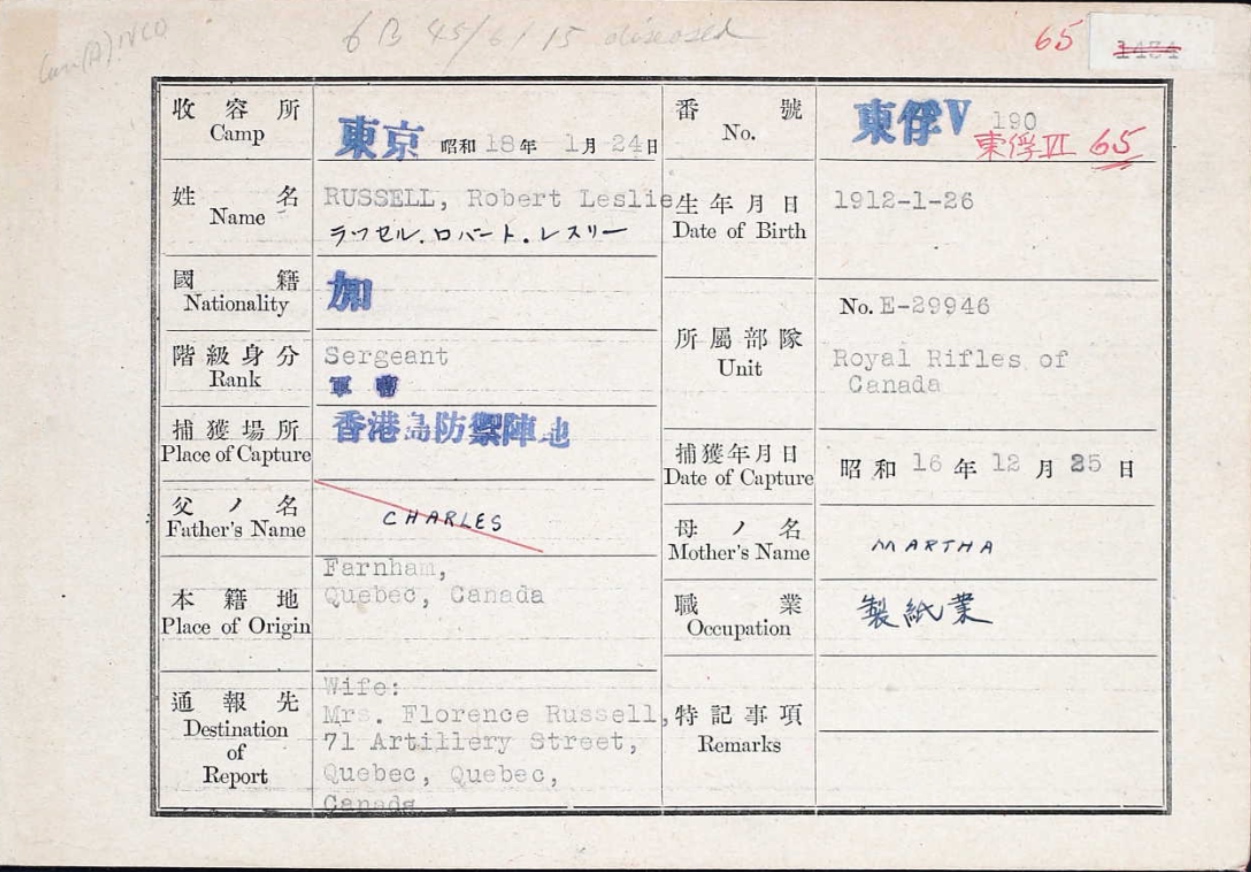 Can(A) NCO
6 B 45/6/15 diseased
65
1434
收容所
Camp
東京 昭和18年 1月24日
番號
No.
東俘V 190
東俘VI 65
姓名
Name
RUSSELL, Robert Leslie
ラッセル.ロバート.レスリー
生年月日
Date of Birth
1912-1-26
國籍
Nationality
加
所屬部隊
Unit
No. E-29946
Royal Rifles of
Canada
階級身分
Rank
Sergeant
軍曹
捕獲場所
Place of Capture
香港島防禦陣地
捕獲年月日
Date of Capture
昭和16年12月25日
父ノ名
Father's Name
CHARLES
母ノ名
Mother's Name
MARTHA
本籍地
Place of Origin
Farnham,
Quebec, Canada
職業
Occupation
製紙業
通報先
Destination
of
Report
Wife:
Mrs. Florence Russell,
71 Artillery Street,
Quebec, Quebec,
Canada
特記事項
Remarks